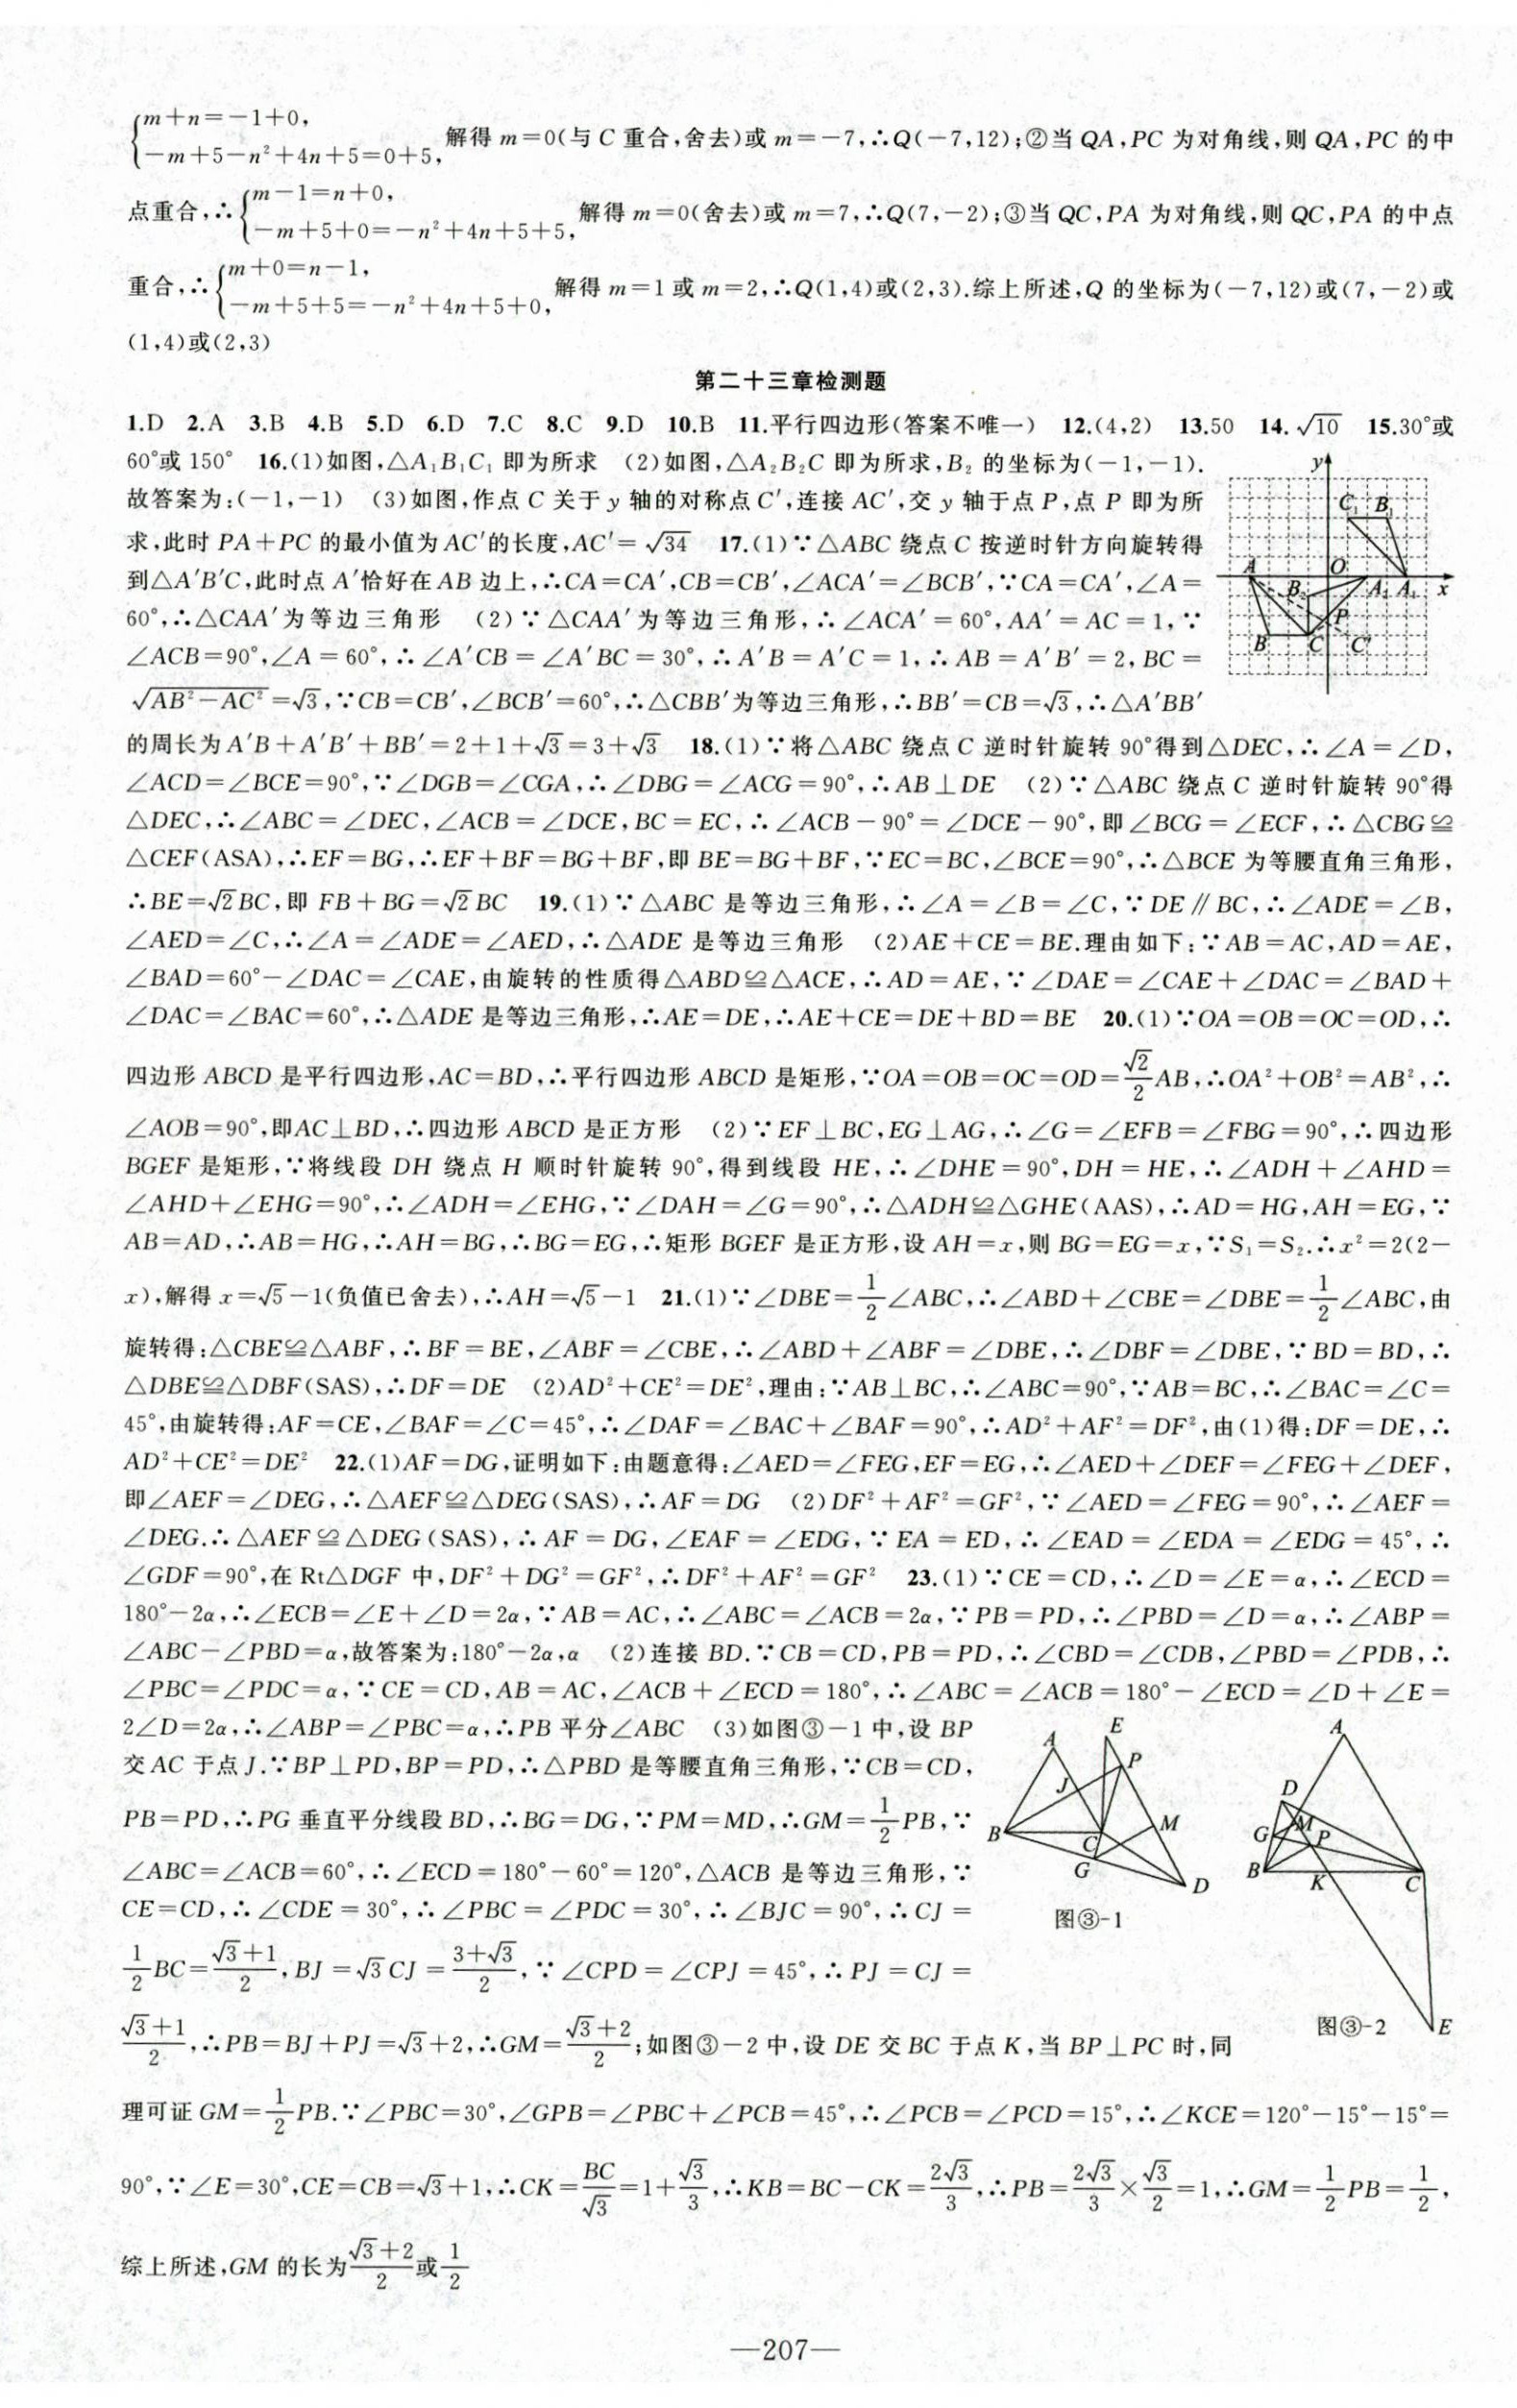 {m+n=-1+0,
-m+5-n²+4n+5=0+5, 解得 m=0(与 C 重合,舍去)或 m=-7,∴Q(-7,12);②当 QA,PC 为对角线,则 QA,PC 的中
点重合,∴{m-1=n+0,
-m+5+0=-n²+4n+5+5, 解得 m=0(舍去)或 m=7,∴Q(7,-2);③当 QC,PA 为对角线,则 QC,PA 的中点
重合,∴{m+0=n-1,
-m+5+5=-n²+4n+5+0, 解得 m=1 或 m=2,∴Q(1,4)或(2,3).综上所述,Q 的坐标为(-7,12)或(7,-2)或
(1,4)或(2,3)
第二十三章检测题
1.D 2.A 3.B 4.B 5.D 6.D 7.C 8.C 9.D 10.B 11.平行四边形(答案不唯一) 12.(4,2) 13.50 14.√10 15.30°或
60°或 150° 16.(1)如图,△A₁B₁C₁ 即为所求 (2)如图,△A₂B₂C 即为所求,B₂ 的坐标为(-1,-1).
故答案为:(-1,-1) (3)如图,作点 C 关于 y 轴的对称点 C′,连接 AC′,交 y 轴于点 P,点 P 即为所
求,此时 PA+PC 的最小值为 AC′的长度,AC′=√34 17.(1)∵△ABC 绕点 C 按逆时针方向旋转得
到△A′B′C,此时点 A′恰好在 AB 边上,∴CA=CA′,CB=CB′,∠ACA′=∠BCB′,∵CA=CA′,∠A=
60°,∴△CAA′为等边三角形 (2)∵△CAA′为等边三角形,∴∠ACA′=60°,AA′=AC=1,∵
∠ACB=90°,∠A=60°,∴∠A′CB=∠A′BC=30°,∴A′B=A′C=1,∴AB=A′B′=2,BC=
√(AB²-AC²)=√3,∵CB=CB′,∠BCB′=60°,∴△CBB′为等边三角形,∴BB′=CB=√3,∴△A′BB′
的周长为 A′B+A′B′+BB′=2+1+√3=3+√3 18.(1)∵将△ABC 绕点 C 逆时针旋转 90°得到△DEC,∴∠A=∠D,
∠ACD=∠BCE=90°,∵∠DGB=∠CGA,∴∠DBG=∠ACG=90°,∴AB⊥DE (2)∵△ABC 绕点 C 逆时针旋转 90°得
△DEC,∴∠ABC=∠DEC,∠ACB=∠DCE,BC=EC,∴∠ACB-90°=∠DCE-90°,即∠BCG=∠ECF,∴△CBG≌
△CEF(ASA),∴EF=BG,∴EF+BF=BG+BF,即 BE=BG+BF,∵EC=BC,∠BCE=90°,∴△BCE 为等腰直角三角形,
∴BE=√2BC,即 FB+BG=√2BC 19.(1)∵△ABC 是等边三角形,∴∠A=∠B=∠C,∵DE∥BC,∴∠ADE=∠B,
∠AED=∠C,∴∠A=∠ADE=∠AED,∴△ADE 是等边三角形 (2)AE+CE=BE.理由如下:∵AB=AC,AD=AE,
∠BAD=60°-∠DAC=∠CAE,由旋转的性质得△ABD≌△ACE,∴AD=AE,∵∠DAE=∠CAE+∠DAC=∠BAD+
∠DAC=∠BAC=60°,∴△ADE 是等边三角形,∴AE=DE,∴AE+CE=DE+BD=BE 20.(1)∵OA=OB=OC=OD,∴
四边形 ABCD 是平行四边形,AC=BD,∴平行四边形 ABCD 是矩形,∵OA=OB=OC=OD=√2/2AB,∴OA²+OB²=AB²,∴
∠AOB=90°,即AC⊥BD,∴四边形 ABCD 是正方形 (2)∵EF⊥BC,EG⊥AG,∴∠G=∠EFB=∠FBG=90°,∴四边形
BGEF 是矩形,∵将线段 DH 绕点 H 顺时针旋转 90°,得到线段 HE,∴∠DHE=90°,DH=HE,∴∠ADH+∠AHD=
∠AHD+∠EHG=90°,∴∠ADH=∠EHG,∵∠DAH=∠G=90°,∴△ADH≌△GHE(AAS),∴AD=HG,AH=EG,∵
AB=AD,∴AB=HG,∴AH=BG,∴BG=EG,∴矩形 BGEF 是正方形,设 AH=x,则 BG=EG=x,∵S₁=S₂.∴x²=2(2-
x),解得 x=√5-1(负值已舍去),∴AH=√5-1 21.(1)∵∠DBE=1/2∠ABC,∴∠ABD+∠CBE=∠DBE=1/2∠ABC,由
旋转得:△CBE≌△ABF,∴BF=BE,∠ABF=∠CBE,∴∠ABD+∠ABF=∠DBE,∴∠DBF=∠DBE,∵BD=BD,∴
△DBE≌△DBF(SAS),∴DF=DE (2)AD²+CE²=DE²,理由:∵AB⊥BC,∴∠ABC=90°,∵AB=BC,∴∠BAC=∠C=
45°,由旋转得:AF=CE,∠BAF=∠C=45°,∴∠DAF=∠BAC+∠BAF=90°,∴AD²+AF²=DF²,由(1)得:DF=DE,∴
AD²+CE²=DE² 22.(1)AF=DG,证明如下:由题意得:∠AED=∠FEG,EF=EG,∴∠AED+∠DEF=∠FEG+∠DEF,
即∠AEF=∠DEG,∴△AEF≌△DEG(SAS),∴AF=DG (2)DF²+AF²=GF²,∵∠AED=∠FEG=90°,∴∠AEF=
∠DEG.∴△AEF≌△DEG(SAS),∴AF=DG,∠EAF=∠EDG,∵EA=ED,∴∠EAD=∠EDA=∠EDG=45°,∴
∠GDF=90°,在 Rt△DGF 中,DF²+DG²=GF²,∴DF²+AF²=GF² 23.(1)∵CE=CD,∴∠D=∠E=α,∴∠ECD=
180°-2α,∴∠ECB=∠E+∠D=2α,∵AB=AC,∴∠ABC=∠ACB=2α,∵PB=PD,∴∠PBD=∠D=α,∴∠ABP=
∠ABC-∠PBD=α,故答案为:180°-2α,α (2)连接 BD.∵CB=CD,PB=PD,∴∠CBD=∠CDB,∠PBD=∠PDB,∴
∠PBC=∠PDC=α,∵CE=CD,AB=AC,∠ACB+∠ECD=180°,∴∠ABC=∠ACB=180°-∠ECD=∠D+∠E=
2∠D=2α,∴∠ABP=∠PBC=α,∴PB 平分∠ABC (3)如图③-1 中,设 BP
交 AC 于点 J.∵BP⊥PD,BP=PD,∴△PBD 是等腰直角三角形,∵CB=CD,
PB=PD,∴PG 垂直平分线段 BD,∴BG=DG,∵PM=MD,∴GM=1/2PB,∵
∠ABC=∠ACB=60°,∴∠ECD=180°-60°=120°,△ACB 是等边三角形,∵
CE=CD,∴∠CDE=30°,∴∠PBC=∠PDC=30°,∴∠BJC=90°,∴CJ=
1/2BC=(√3+1)/2,BJ=√3CJ=(3+√3)/2,∵∠CPD=∠CPJ=45°,∴PJ=CJ=
(√3+1)/2,∴PB=BJ+PJ=√3+2,∴GM=(√3+2)/2;如图③-2 中,设 DE 交 BC 于点 K,当 BP⊥PC 时,同
理可证 GM=1/2PB.∵∠PBC=30°,∠GPB=∠PBC+∠PCB=45°,∴∠PCB=∠PCD=15°,∴∠KCE=120°-15°-15°=
90°,∵∠E=30°,CE=CB=√3+1,∴CK=BC/√3=1+√3/3,∴KB=BC-CK=2√3/3,∴PB=2√3/3×√3/2=1,∴GM=1/2PB=1/2,
综上所述,GM 的长为(√3+2)/2或1/2
y
C₁ B₁
A O A₂ A₁ x
B₂
P
B C C′
A E
P
J
B C M
G
D
图③-1
A
D
G M P
B K C
E
图③-2
—207—